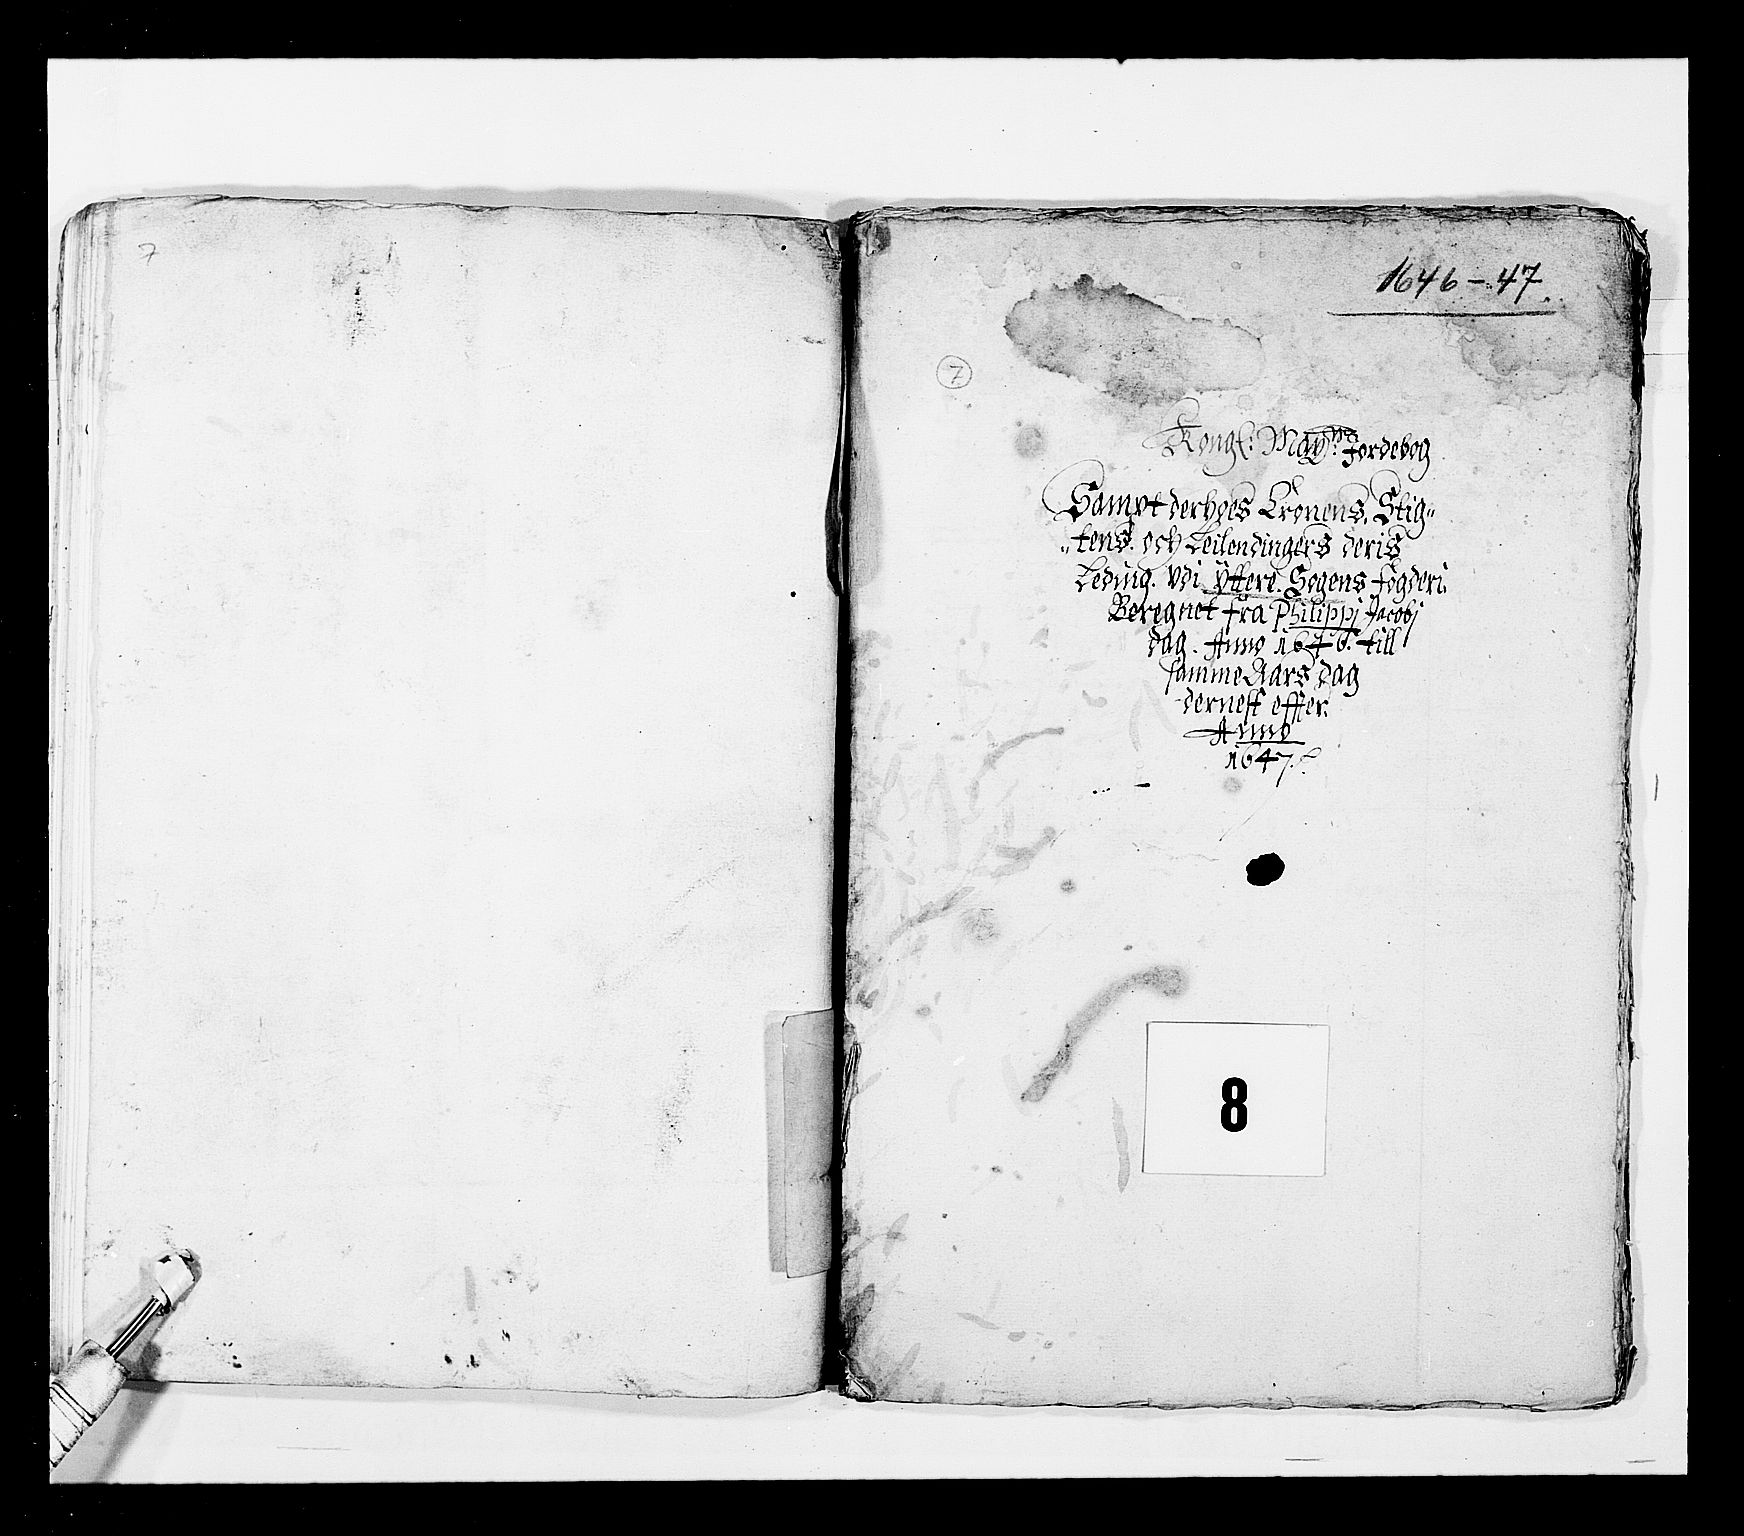 7
1646-47.
7
Kongl: May^tts Jordebog
Sampt derhoes Cronens, Stig„
„tens. och Leilendingers deris
Leding. Vdi Ÿttere. Sogens Fogderi.
Beregnet fra Philippi Jacobj
dag. Anno 1646. till
samme Aars dag
dernest effter.
Anno
1647.
8